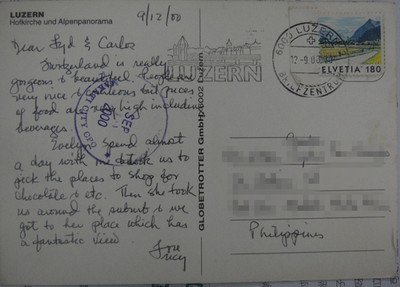 LUZERN
Hofkirche und Alpenpanorama
9/12/00
Dear Syd & Carlos
Switzerland is really
gorgeous & beautiful. People are
very nice & courteous but prices
of food are very high including
beverages.
Evelyn Spend almost
a day with took us to
pick the places to shop for
chocolate & etc. Then she took
us around the suburb & we
got to her place which has
a fantastic view
Love
Lucy
LUZERN
6000 LUZERN
12-9.00
BRIEFZENTRUM
HELVETIA 180
MAKATI CITY
SEP
2000
GLOBETROTTER GmbH, 6002 Luzern
Philippines